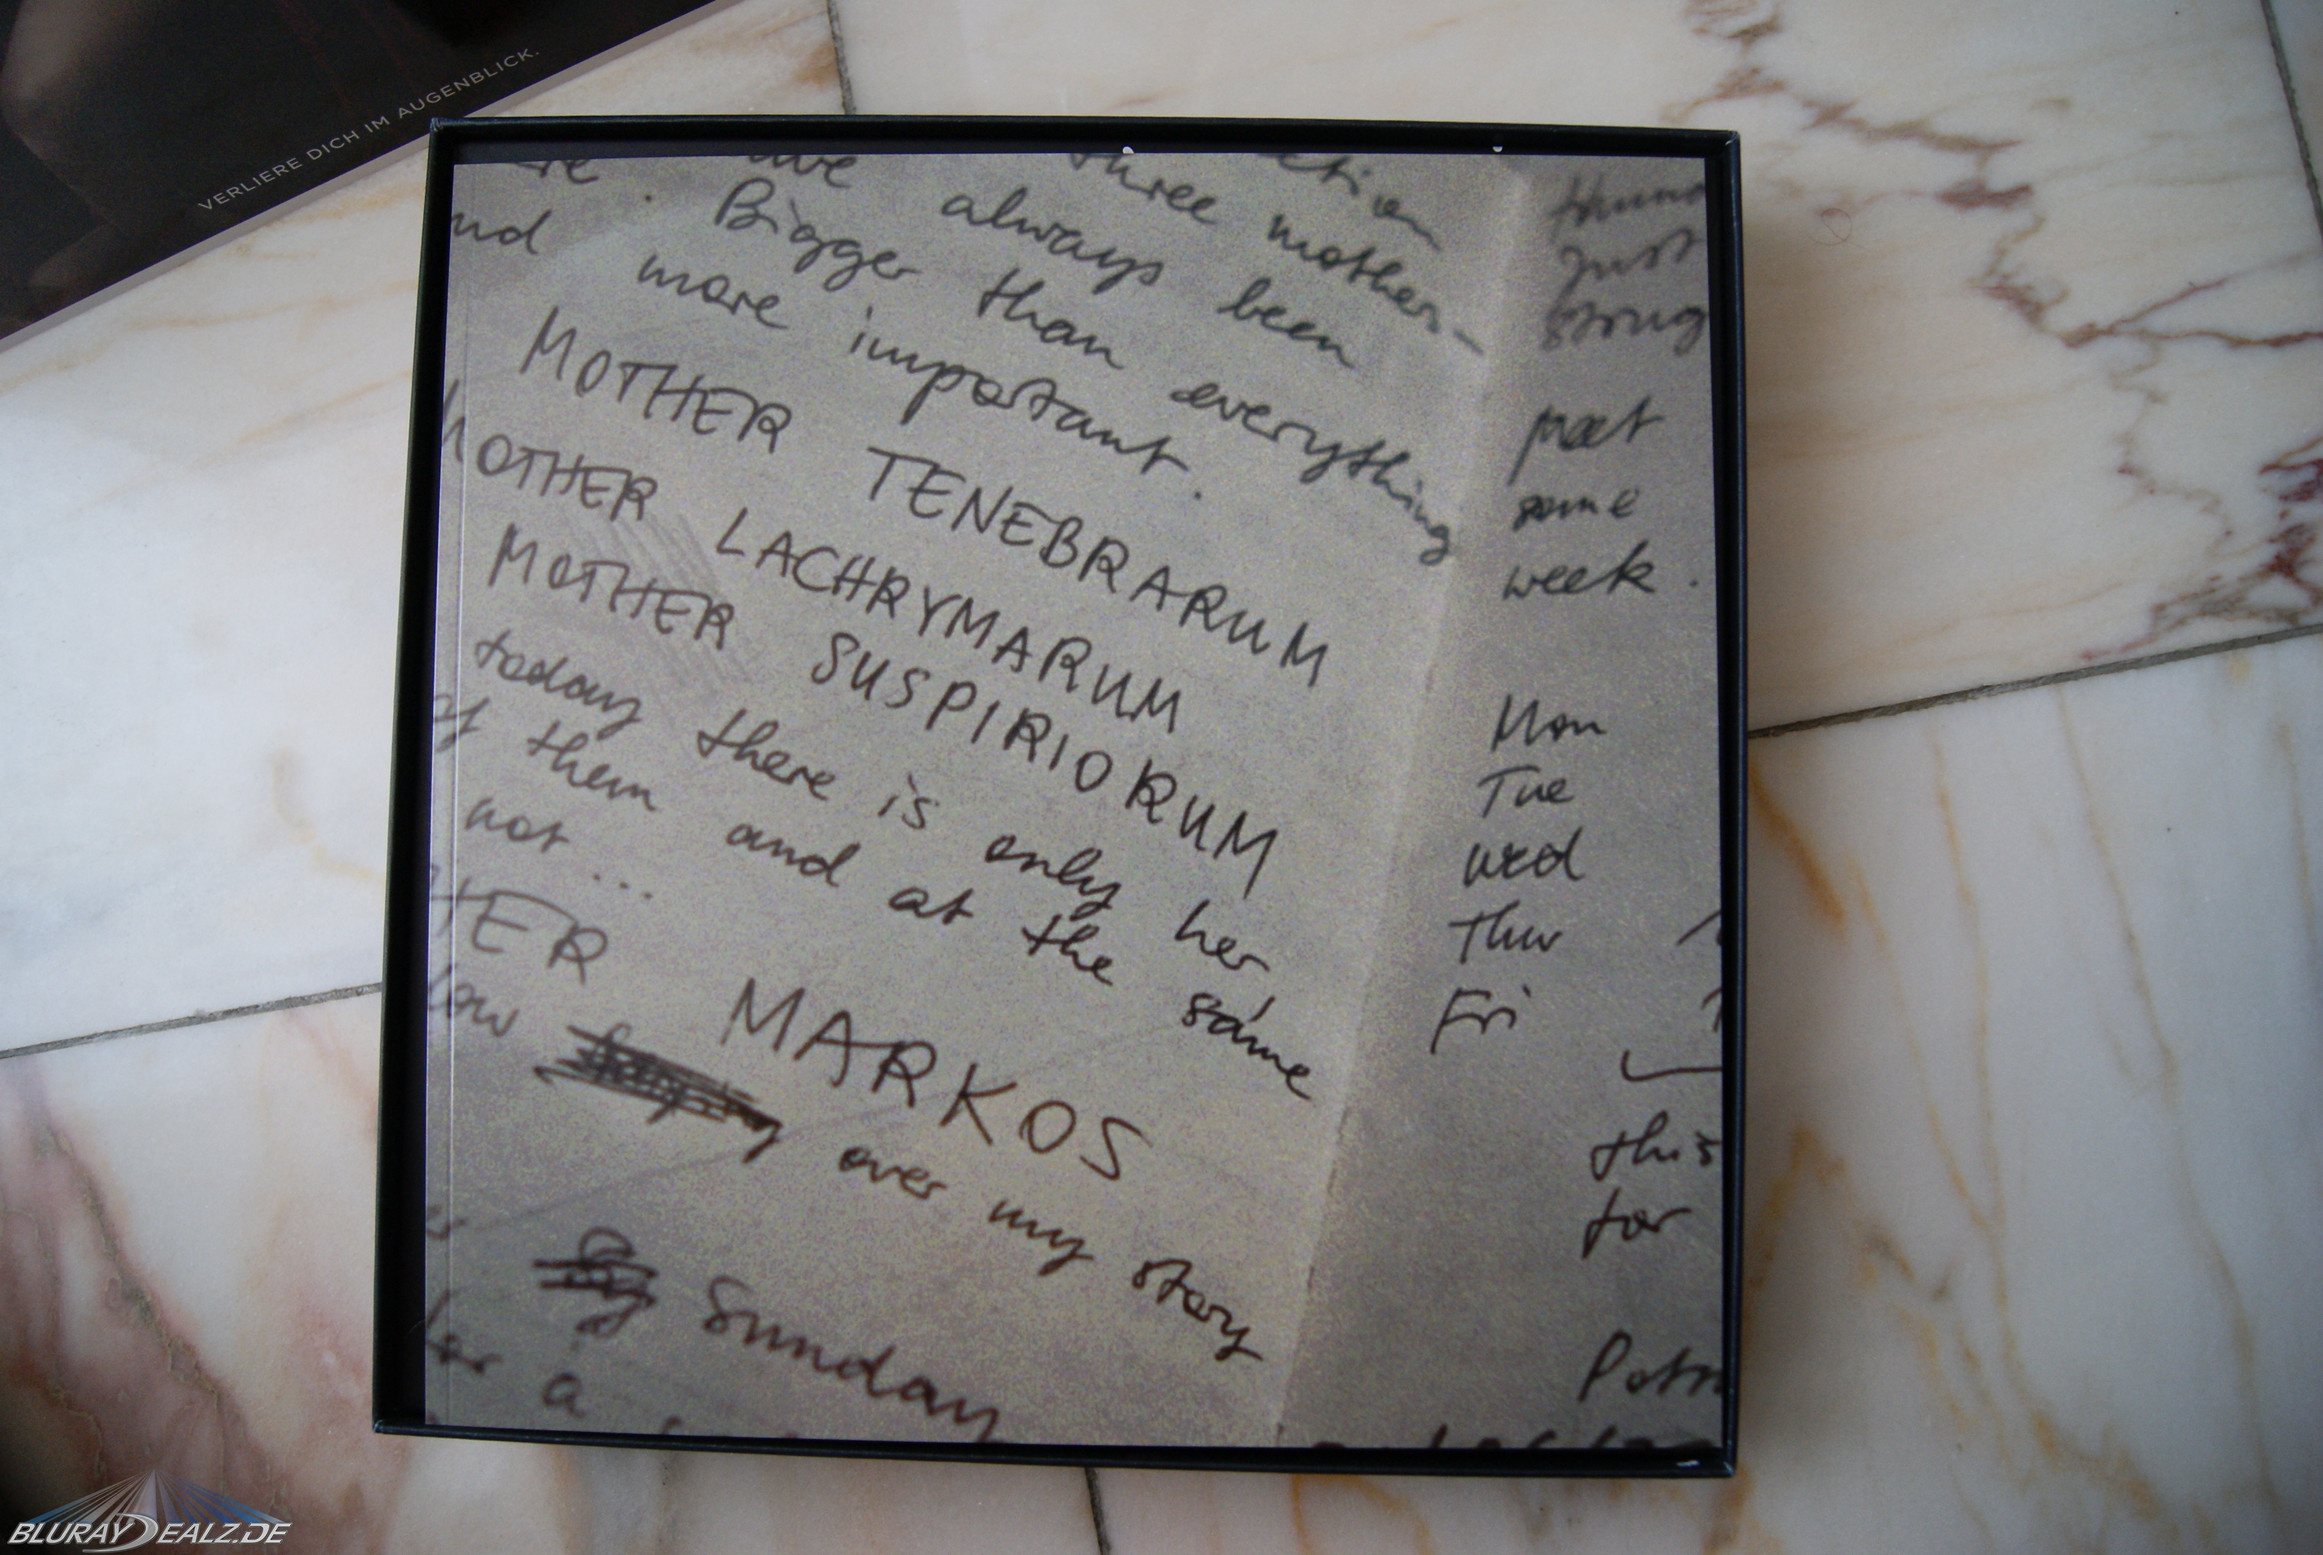 VERLIERE DICH IM AUGENBLICK.
three mother-
always been
Bigger than everything
more important.
MOTHER TENEBRARUM
MOTHER LACHRYMARUM
MOTHER SUSPIRIORUM
today there is only her
of them and at the same
not ...
THER MARKOS
over my story
Sunday
for a
Just
strug
meet
some
week.
Mon
Tue
Wed
Thur
Fri
this
for
BLURAYDEALZ.DE